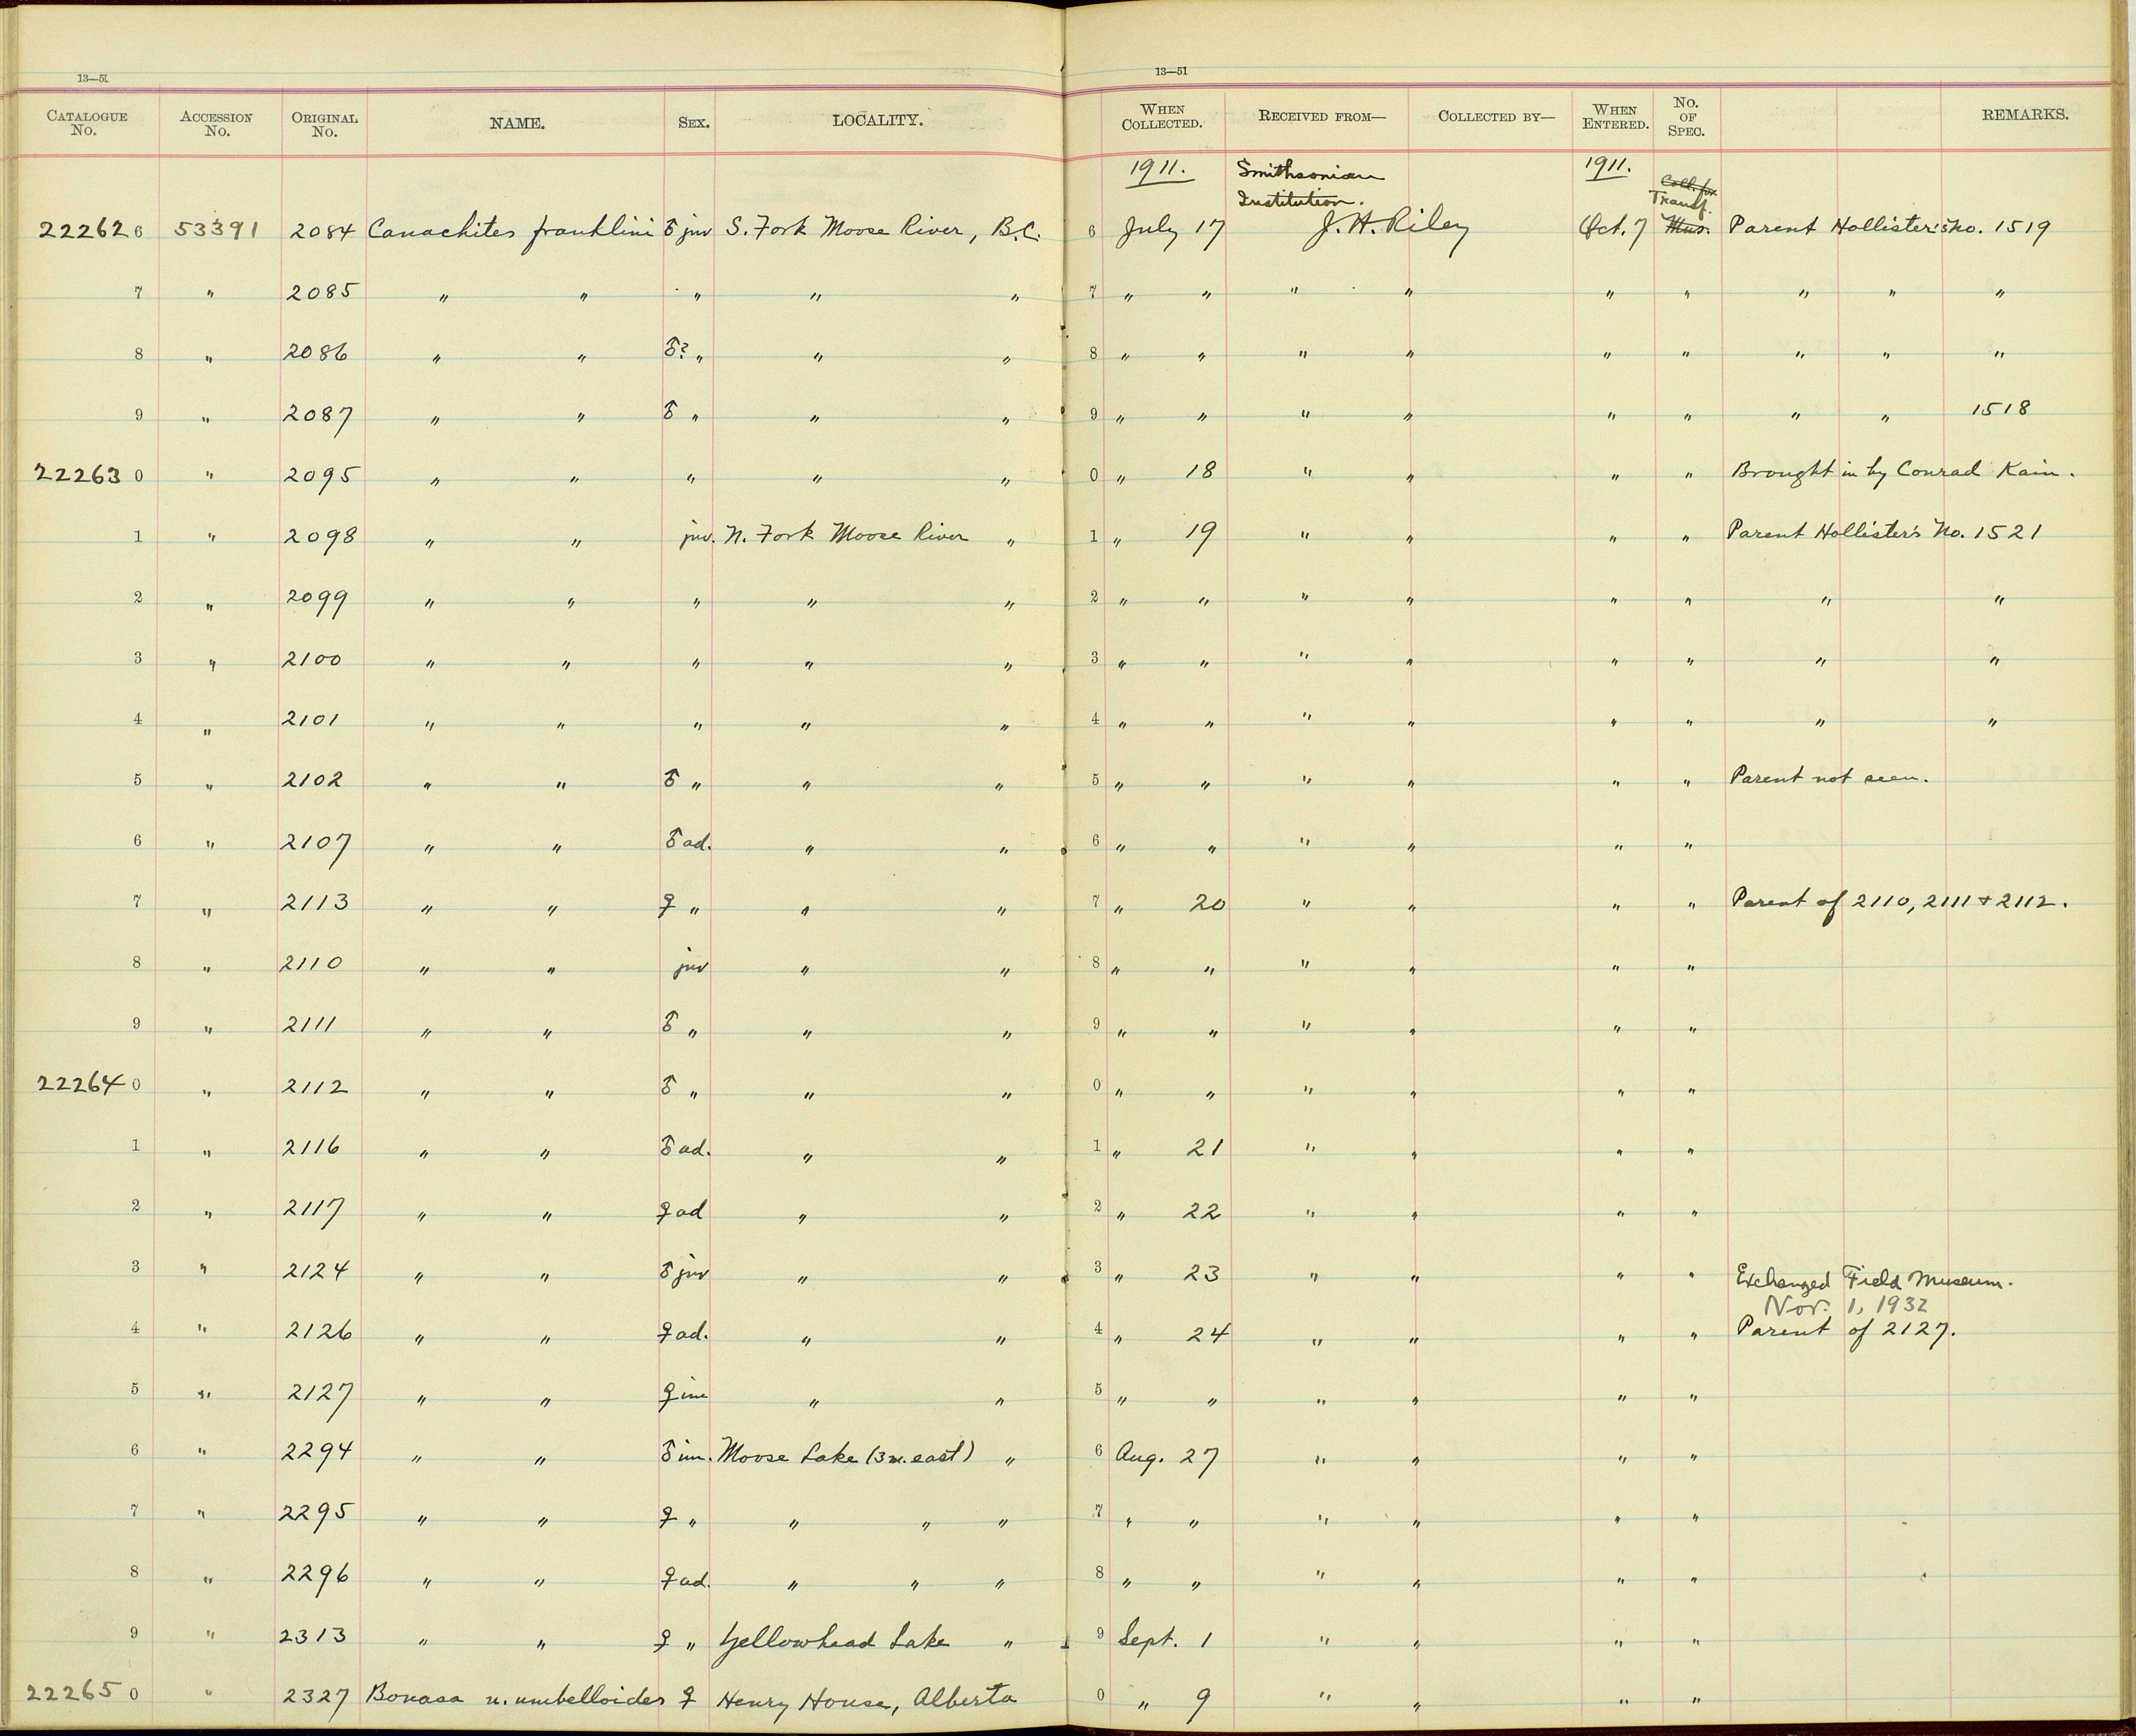 13—51 13—51
CATALOGUE No. ACCESSION No. ORIGINAL No. NAME. SEX. LOCALITY. WHEN COLLECTED. RECEIVED FROM— COLLECTED BY— WHEN ENTERED. No. OF SPEC. REMARKS.
1911. Smithsonian Institution. 1911. Coll. for Transf.
222626 53391 2084 Canachites franklini ♂ juv S. Fork Moose River, B.C. 6 July 17 J. H. Riley Oct. 7 Mus. Parent Hollister's No. 1519
7 " 2085 " " " " " 7 " " " " " " " " "
8 " 2086 " " ♂? " " " 8 " " " " " " " " "
9 " 2087 " " ♂ " " " 9 " " " " " " " " 1518
222630 " 2095 " " " " " 0 " 18 " " " " Brought in by Conrad Kain.
1 " 2098 " " juv. N. Fork Moose River " 1 " 19 " " " " Parent Hollister's No. 1521
2 " 2099 " " " " " 2 " " " " " " " "
3 " 2100 " " " " " 3 " " " " " " " "
4 " 2101 " " " " " 4 " " " " " " " "
5 " 2102 " " ♂ " " " 5 " " " " " " Parent not seen.
6 " 2107 " " ♂ ad. " " 6 " " " " " "
7 " 2113 " " ♀ " " " 7 " 20 " " " " Parent of 2110, 2111 + 2112.
8 " 2110 " " juv " " 8 " " " " " "
9 " 2111 " " ♂ " " " 9 " " " " " "
222640 " 2112 " " ♂ " " " 0 " " " " " "
1 " 2116 " " ♂ ad. " " 1 " 21 " " " "
2 " 2117 " " ♀ ad " " 2 " 22 " " " "
3 " 2124 " " ♂ juv " " 3 " 23 " " " " Exchanged Field Museum.
Nov. 1, 1932
4 " 2126 " " ♀ ad. " " 4 " 24 " " " " Parent of 2127.
5 " 2127 " " ♀ im " " 5 " " " " " "
6 " 2294 " " ♂ im. Moose Lake (3 m. east) " 6 Aug. 27 " " " "
7 " 2295 " " ♀ " " " " 7 " " " " " "
8 " 2296 " " ♀ ad. " " " 8 " " " " " "
9 " 2313 " " ♀ " Yellowhead Lake " 9 Sept. 1 " " " "
222650 " 2327 Bonasa u. umbelloides ♀ Henry House, Alberta 0 " 9 " " " "